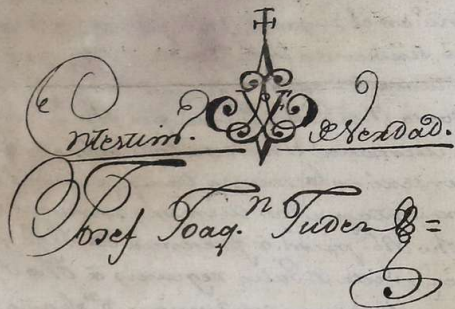 En testim.º de Verdad.
Josef Joaq.n Tudez